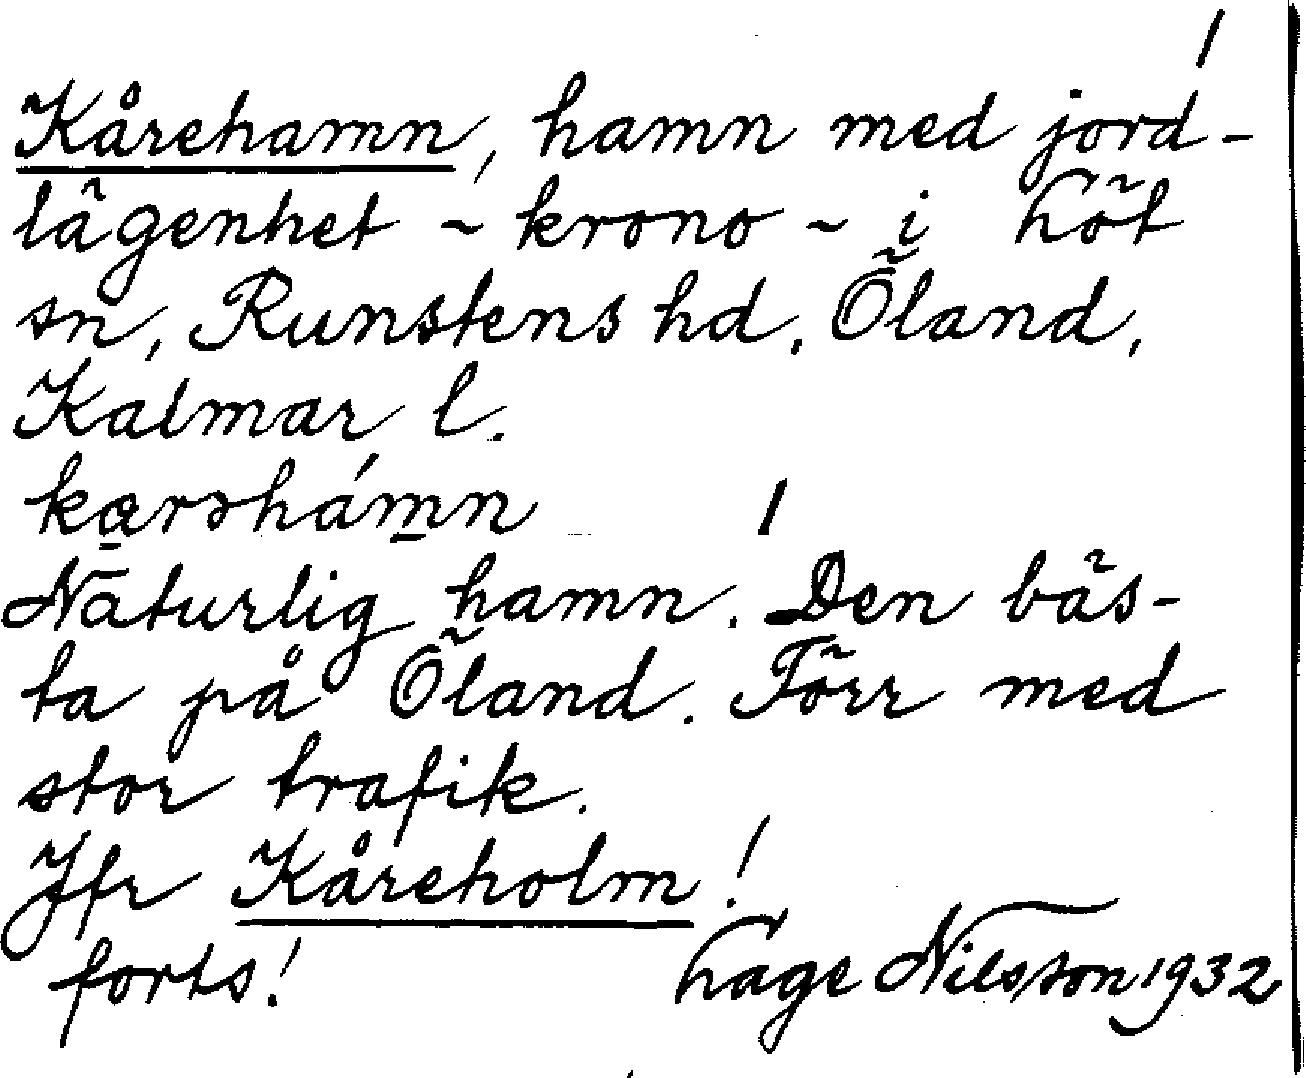 1
Kårehamn, hamn med jord-
lägenhet ~ krono ~ i Löt
sn, Runstens hd. Öland,
Kalmar l.
kɑ̲rəhám̲n 1
Naturlig hamn. Den bäs-
ta på Öland. Förr med
stor trafik.
Jfr Kåreholm!
forts! Lage Nilsson 1932